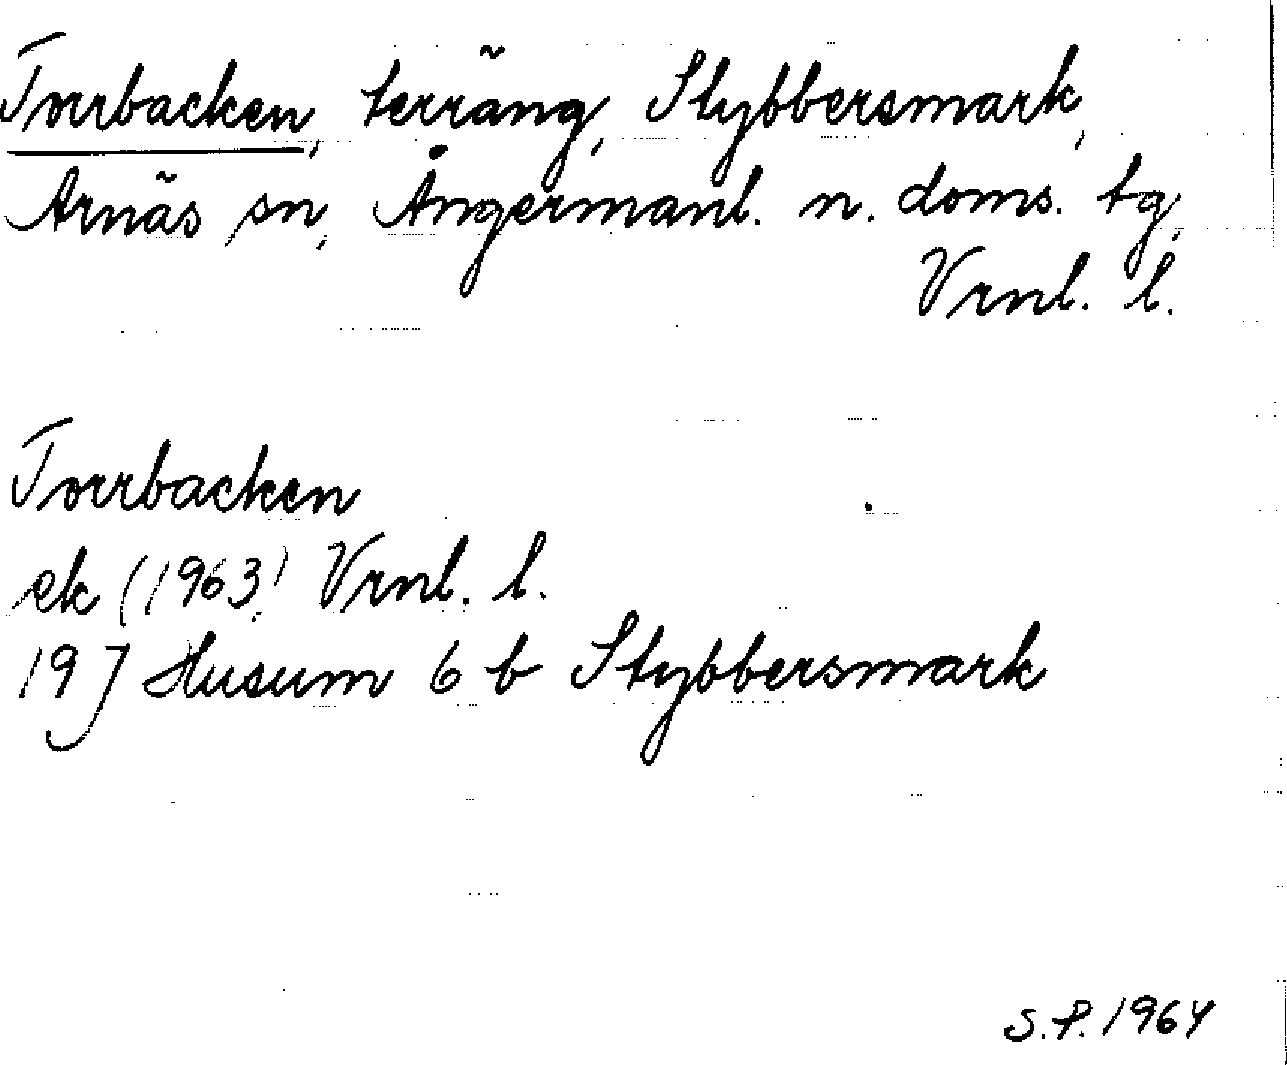 Torrbacken, terräng, Stybbersmark,
Arnäs sn, Ångermanl. n. doms. tg,
Vrnl. l.
Torrbacken
ek (1963) Vrnl. l.
19J Husum 6 b Stybbersmark
S.P. 1964